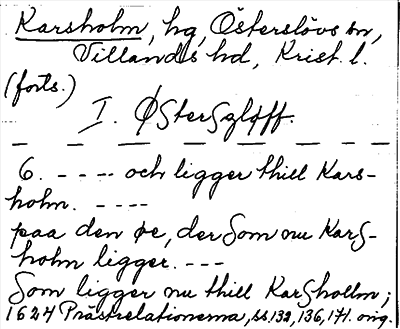 Karsholm, hg, Österslövs sn,
Villands hd, Krist. l.
(forts.)
I. Østersløff.
6. - - - - och ligger thill Kars-
holm. - - - -
paa den øe, der Som nu Kars-
holm ligger. - - -
Som ligger nu thill Karshollm;
1624 Prästrelationerna, ss. 132, 136, 171. orig.